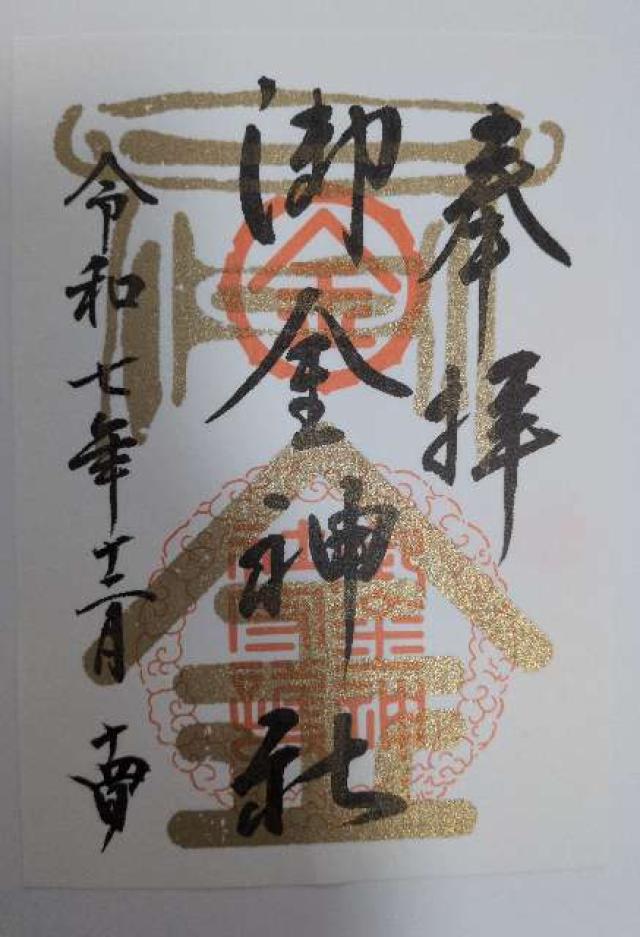 奉拝
御金神社
令和七年十二月十四日
金